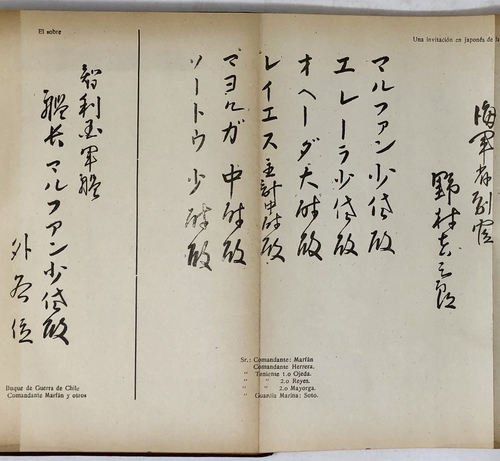 El sobre
Una invitación en japonés de la
海軍省副官
野村吉三郎
マルファン少佐殿
エレーラ少佐殿
オヘーダ大尉殿
レイエス主計中尉殿
マヨルガ中尉殿
ソートウ少尉殿
智利国軍艦
艦長マルファン少佐殿
外各位
Sr.: Comandante: Marfán
Comandante Herrera.
" Teniente 1.o Ojeda.
" " 2.o Reyes.
" " 2.o Mayorga.
" Guardia Marina: Soto.
Buque de Guerra de Chile
Comandante Marfán y otros